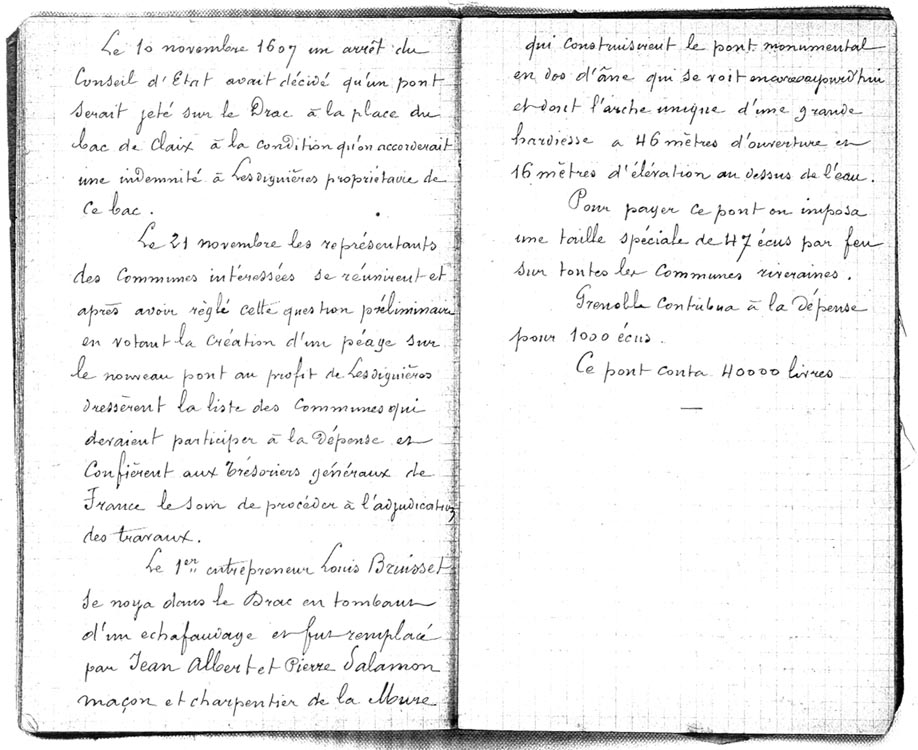 Le 10 novembre 1607 un arrêt du
Conseil d'Etat avait décidé qu'un pont
serait jeté sur le Drac à la place du
bac de Claix à la condition qu'on accorderait
une indemnité à Lesdiguières propriétaire de
ce bac.
Le 21 novembre les représentants
des Communes intéressées se réunirent et
après avoir règlé cette question préliminaire
en votant la création d'un péage sur
le nouveau pont au profit de Lesdiguières
dressèrent la liste des Communes qui
devaient participer à la dépense et
Confièrent aux trésoriers généraux de
France le soin de procéder à l'adjudication
des travaux.
Le 1er entrepreneur Louis Bruisset
se noya dans le Drac en tombant
d'un echafaudage et fut remplacé
par Jean Albert et Pierre Salamon
maçon et charpentier de la Mure
qui construisirent le pont monumental
en dos d'âne qui se voit encore aujourd'hui
et dont l'arche unique d'une grande
hardiesse a 46 mètres d'ouverture et
16 mètres d'élévation au dessus de l'eau.
Pour payer ce pont on imposa
une taille spéciale de 47 écus par feu
sur toutes les Communes riveraines.
Grenoble contribua à la dépense
pour 1000 écus.
Ce pont couta 40000 livres